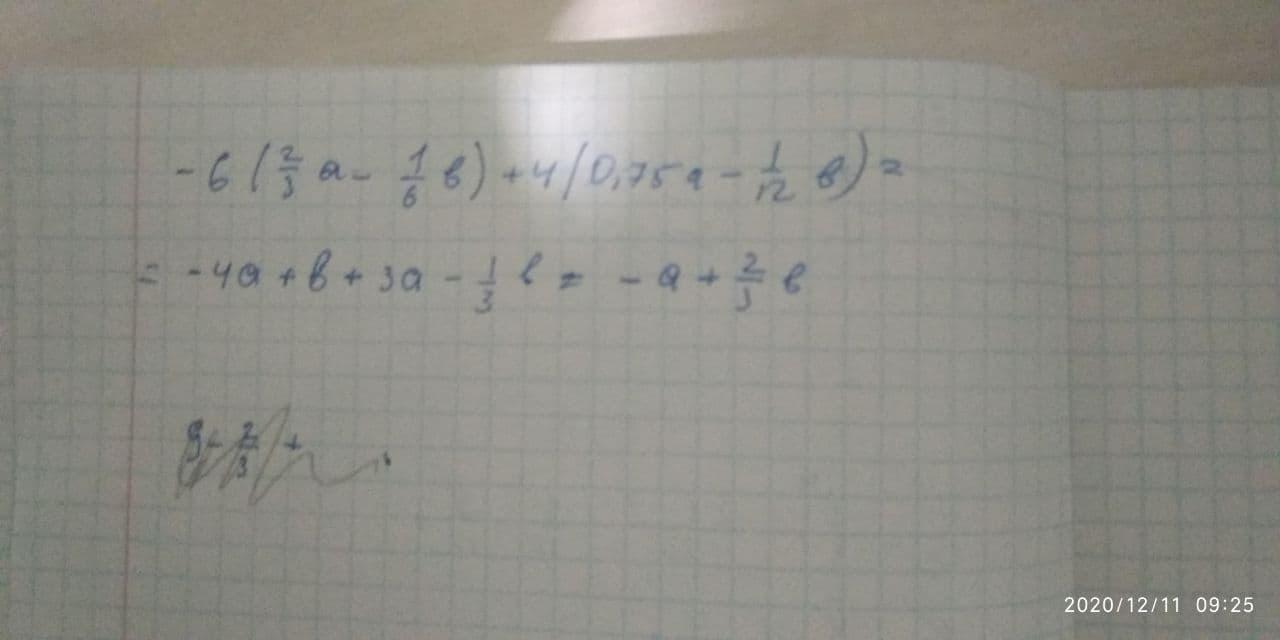 -6(2/3 a - 1/6 в) + 4(0,75a - 1/12 в) =
= -4a + в + 3a - 1/3 в = -a + 2/3 в
2020/12/11 09:25